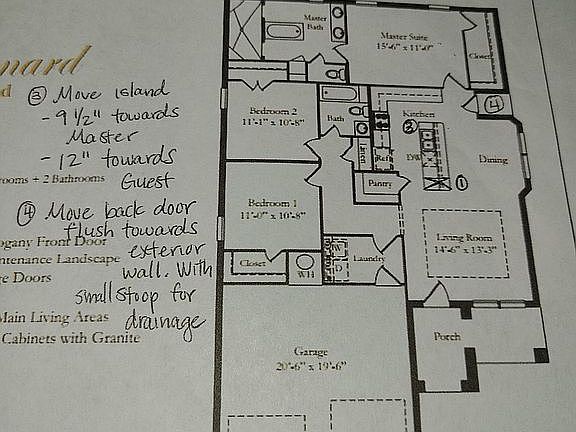 nard
d
③ Move island
- 9 1/2" towards
Master
- 12" towards
Guest
rooms + 2 Bathrooms
④ Move back door
flush towards
exterior
wall. With
small stoop for
drainage
ogany Front Door
ntenance Landscape
re Doors
Main Living Areas
Cabinets with Granite
Master
Bath
Master Suite
15'-6" x 11'-0"
Closet
Bedroom 2
11'-1" x 10'-8"
Bath
Kitchen
④
③
Linen
Ref
DW
Dining
Pantry
①
Bedroom 1
11'-0" x 10'-8"
Living Room
14'-6" x 13'-3"
Closet
WH
W
D
Laundry
Porch
Garage
20'-6" x 19'-6"